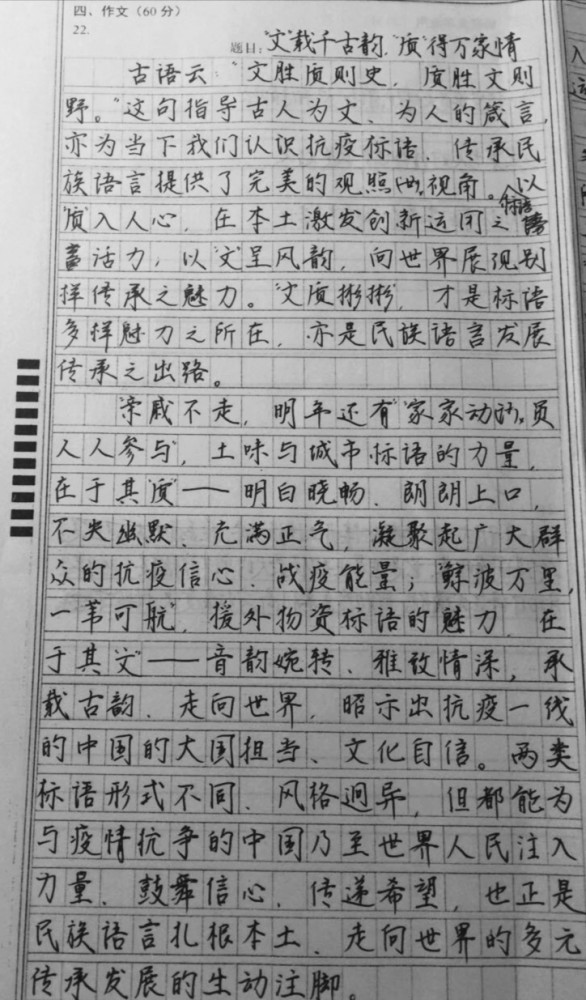 四、作文（60分）
22.
题目："文"载千古韵，"质"得万家情
古语云："文胜质则史，质胜文则
野。"这句指导古人为文、为人的箴言，
亦为当下我们认识抗疫标语、传承民
族语言提供了完美的观照视角。以
"质"入人心，在本土激发创新运用之标语
活力，以"文"呈风韵，向世界展现别
样传承之魅力。"文质彬彬"，才是标语
多样魅力之所在，亦是民族语言发展
传承之出路。
"亲戚不走，明年还有""家家动员，
人人参与"，土味与城市标语的力量，
在于其"质"——明白晓畅、朗朗上口，
不失幽默、充满正气，凝聚起广大群
众的抗疫信心、战疫能量；"鲸波万里，
一苇可航"，援外物资标语的魅力，在
于其"文"——音韵婉转、雅致情深，承
载古韵、走向世界，昭示出抗疫一线
的中国的大国担当、文化自信。两类
标语形式不同、风格迥异，但都能为
与疫情抗争的中国乃至世界人民注入
力量、鼓舞信心、传递希望，也正是
民族语言扎根本土、走向世界的多元
传承发展的生动注脚。